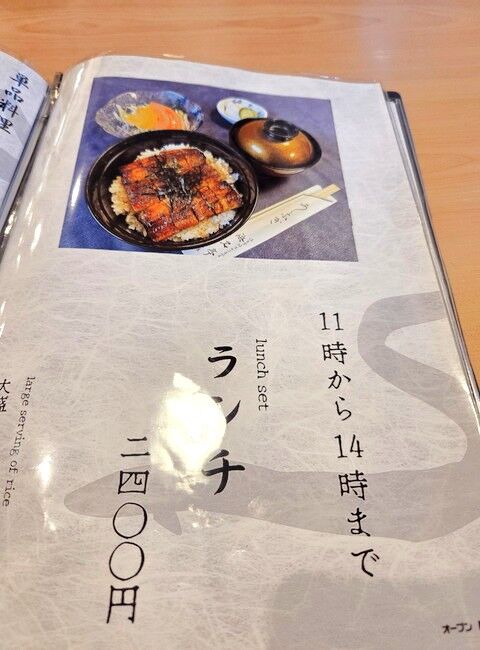 単品料理
11時から14時まで
lunch set
ランチ
二四〇〇円
large serving of rice
大盛
オープン